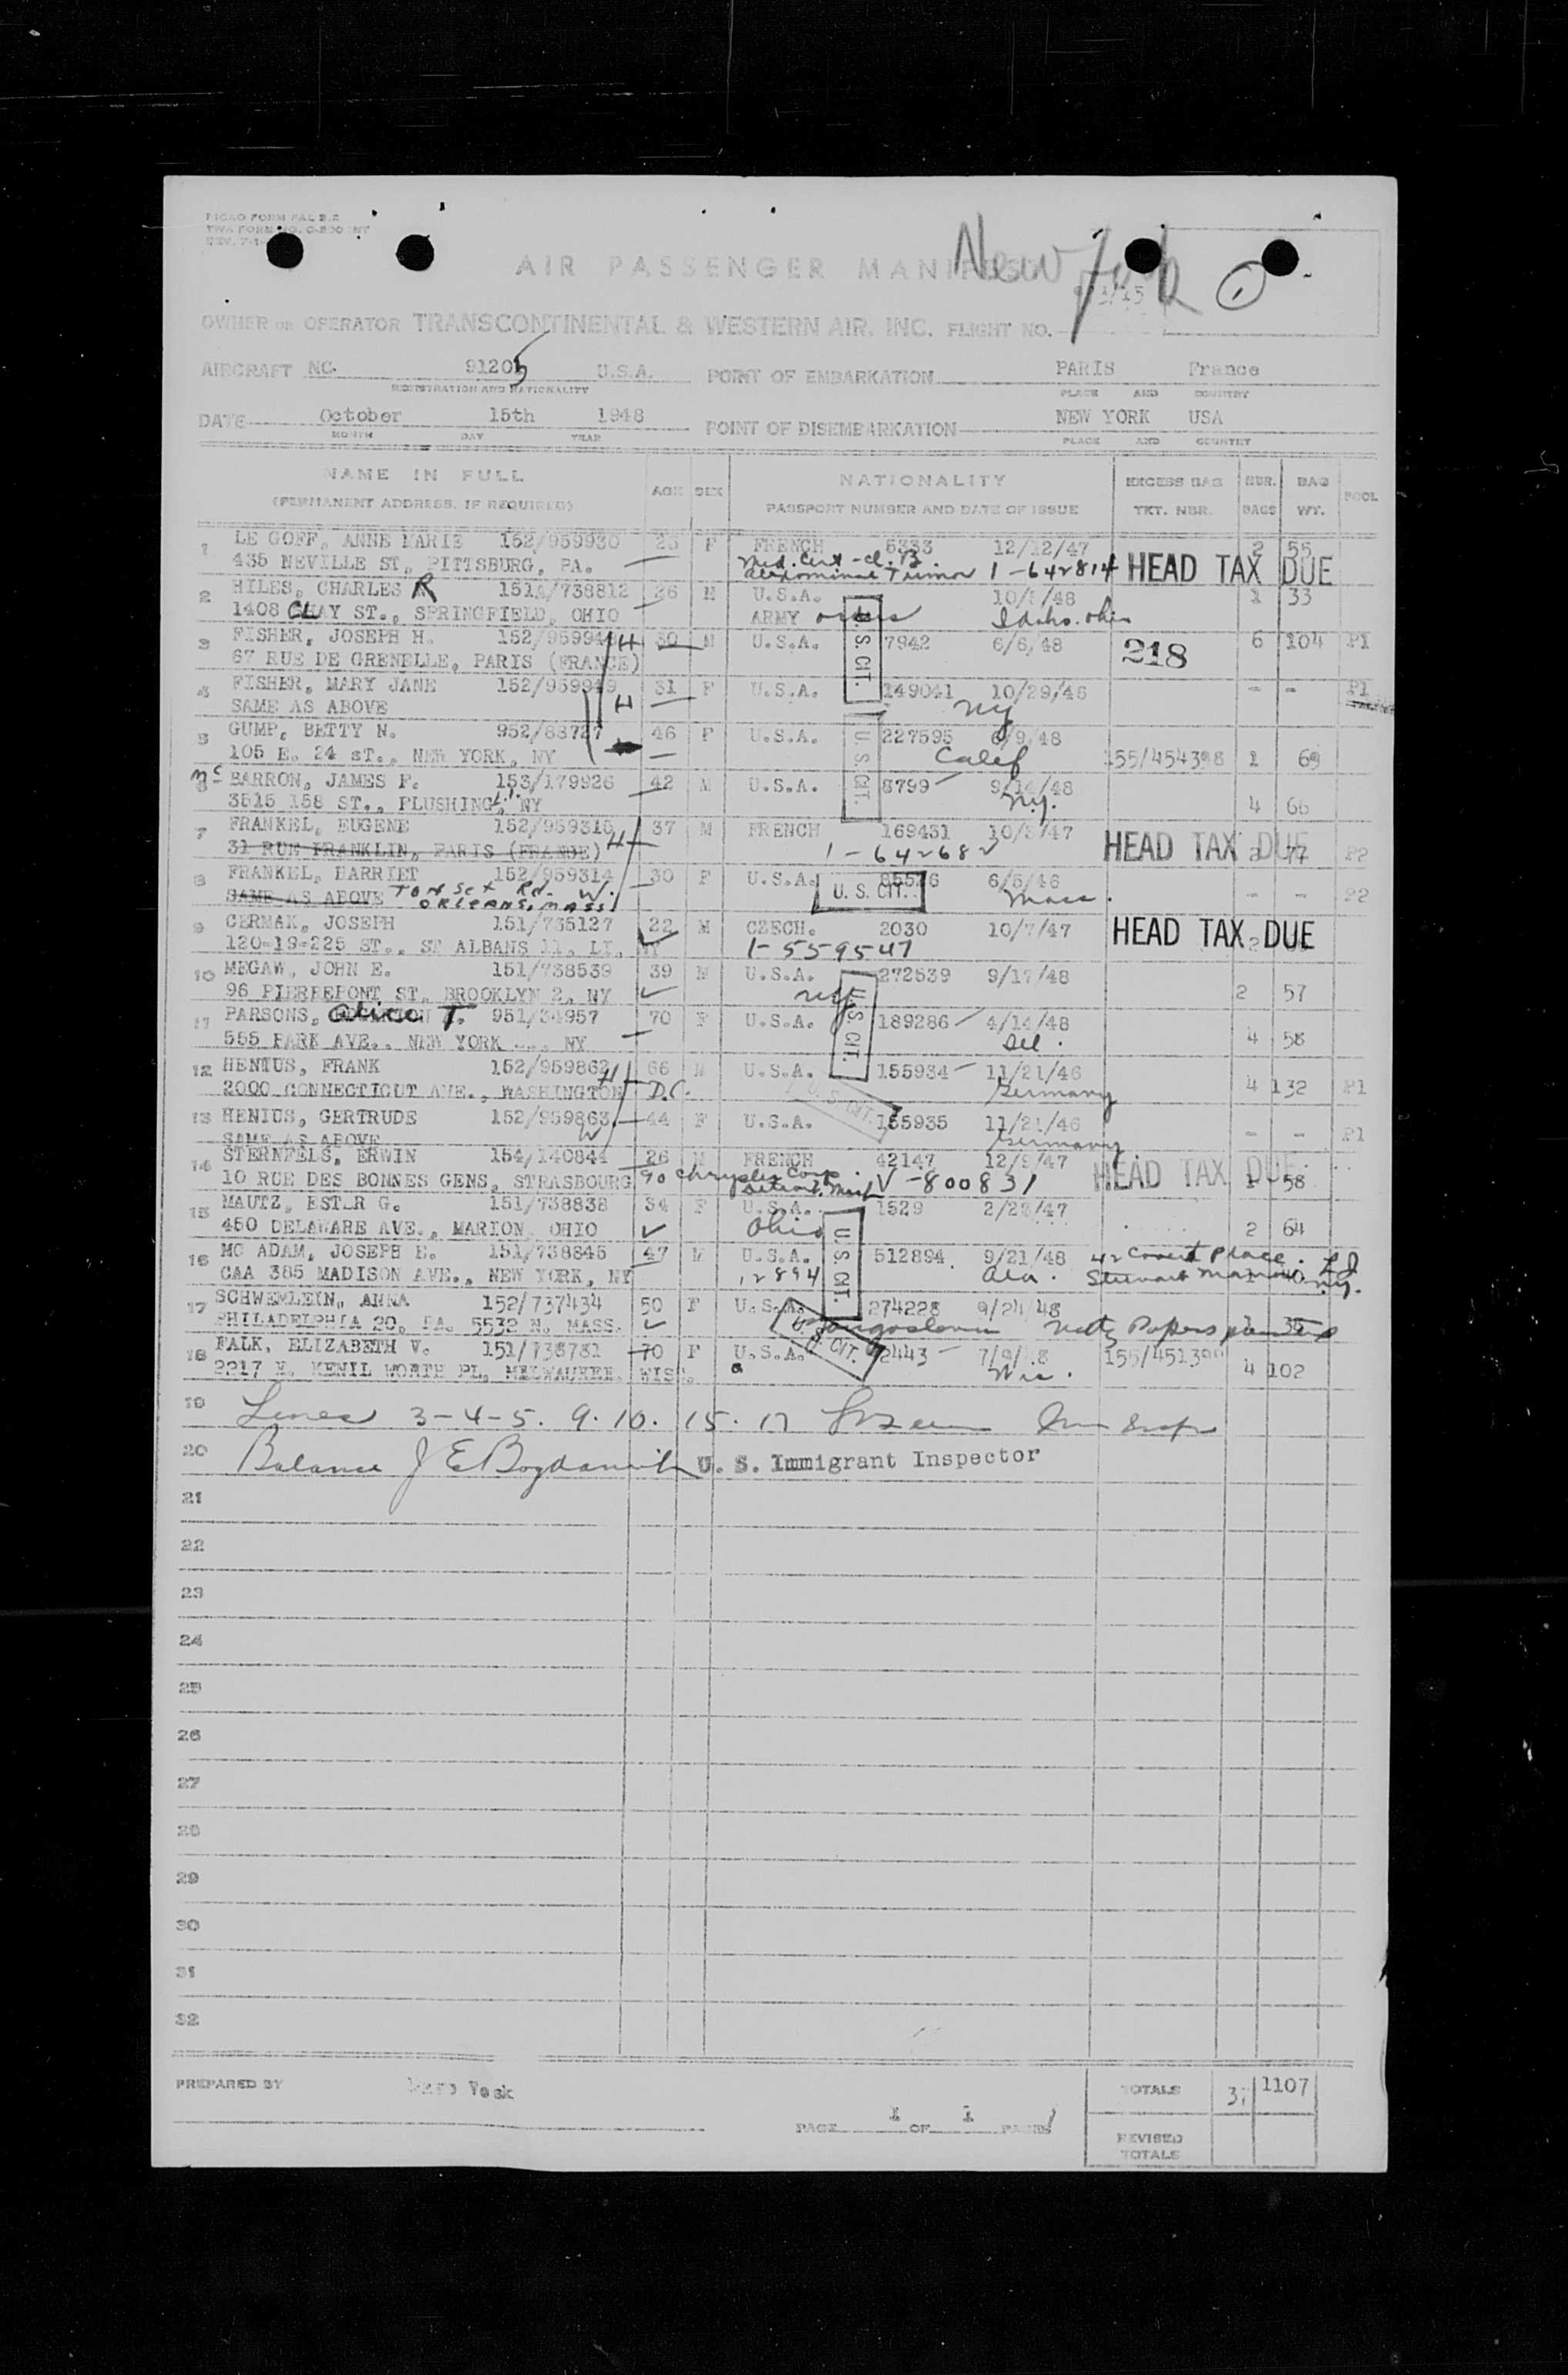 PICAO FORM FAL 2.2
TWA FORM NO. C-200 INT
REV. 7-1-
AIR PASSENGER MANIFEST
New York 1
OWNER OR OPERATOR TRANSCONTINENTAL & WESTERN AIR, INC. FLIGHT NO.
AIRCRAFT NC- 91205 U.S.A. POINT OF EMBARKATION PARIS France
REGISTRATION AND NATIONALITY PLACE AND COUNTRY
DATE October 15th 1948 POINT OF DISEMBARKATION NEW YORK USA
MONTH DAY YEAR PLACE AND COUNTRY
NAME IN FULL AGE SEX NATIONALITY EXCESS BAG NBR. BAG POOL
(PERMANENT ADDRESS, IF REQUIRED) PASSPORT NUMBER AND DATE OF ISSUE TKT. NBR. BAGS WT.
1 LE GOFF, ANNE MARIE 152/959930 25 F FRENCH 5333 12/12/47 2 55
435 NEVILLE ST, PITTSBURG, PA. Med. Cert - Cl. B. Abdominal Tumor 1-642814 HEAD TAX DUE
2 HILES, CHARLES R 151/738812 26 M U.S.A. 10/ /48 1 33
1408 CLAY ST., SPRINGFIELD, OHIO ARMY orders Idaho. Ohio
3 FISHER, JOSEPH H. 152/959948 H 30 M U.S.A. 7942 6/6/48 218 6 104 P1
67 RUE DE GRENELLE, PARIS (FRANCE) U.S. CIT.
4 FISHER, MARY JANE 152/959949 31 F U.S.A. 149041 10/29/46 - - P1
SAME AS ABOVE H NY
5 GUMP, BETTY N. 952/88727 46 F U.S.A. 227595 6/9/48
105 E. 24 ST., NEW YORK, NY U.S. CIT. Calif 155/454398 1 69
6 Mc BARRON, JAMES F. 153/179926 42 M U.S.A. 8799 9/14/48
3515 158 ST., FLUSHING, L.I. NY N.Y. 4 66
7 FRANKEL, EUGENE 152/959315 H 37 M FRENCH 169431 10/8/47 HEAD TAX DUE
31 RUE FRANKLIN, PARIS (FRANCE) 1-642682 77 P2
8 FRANKEL, HARRIET 152/959314 30 F U.S.A. 85526 6/5/46
SAME AS ABOVE Rd. W. ORLEANS, MASS. U. S. CIT. Mass. - - P2
9 CERMAK, JOSEPH 151/735127 22 M CZECH. 2030 10/7/47 HEAD TAX DUE
120-19-225 ST., ST ALBANS 11, LI, NY 1-559547 2
10 MEGAW, JOHN E. 151/738539 39 M U.S.A. 272539 9/17/48
96 PIERREPONT ST, BROOKLYN 2, NY 2 57
11 PARSONS, Alice T. 951/34957 70 F U.S.A. 189286 4/14/48
555 PARK AVE., NEW YORK NY U.S. CIT. Del. 4 58
12 HENIUS, FRANK 152/959862 H 66 M U.S.A. 155934 11/21/46
2000 CONNECTICUT AVE., WASHINGTON D.C. Germany 4 132 P1
13 HENIUS, GERTRUDE 152/959863 W 44 F U.S.A. U.S. CIT. 155935 11/21/46
SAME AS ABOVE Germany - - P1
14 STERNFELS, ERWIN 154/140844 26 M FRENCH 42147 12/9/47 HEAD TAX DUE
10 RUE DES BONNES GENS, STRASBOURG c/o Chrysler Corp. Detroit, Mich V-800831 1 58
15 MAUTZ, ESTER G. 151/738838 34 F U.S.A. 1529 2/28/47
450 DELAWARE AVE., MARION, OHIO Ohio 2 64
16 MC ADAM, JOSEPH E. 151/738845 47 M U.S.A. 512894 9/21/48 42 Covert Place.
CAA 385 MADISON AVE., NEW YORK, NY 12894 U.S. CIT. Ala. Stewart Manor L.I. N.Y. 40
17 SCHWEMLEIN, ANNA 152/737434 50 F U.S.A. 274228 9/24/48
PHILADELPHIA 20, PA. 5532 N. MASS. Yugoslavia Natz Papers 1 35
18 FALK, ELIZABETH V. 151/738781 70 F U.S.A. U.S. CIT. 2443 7/9/48 155/4513
2217 N. KENIL WORTH PL, MILWAUKEE, WISC. Wis. 4 102
19 Lines 3-4-5. 9. 10. 15. 17 Imm Insp
20 Balance J E Bogdanowich U. S. Immigrant Inspector
21
22
23
24
25
26
27
28
29
30
31
32
PREPARED BY TOTALS 37 1107
PAGE 1 OF 1 PAGES
REVISED TOTALS